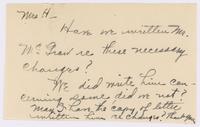 Mrs H-
Have we written Mr.
Mc Grad re these necessary
changes?
We did write him con-
cerning some did we not?
May I have the copy of letter
written him re changes? Thank you